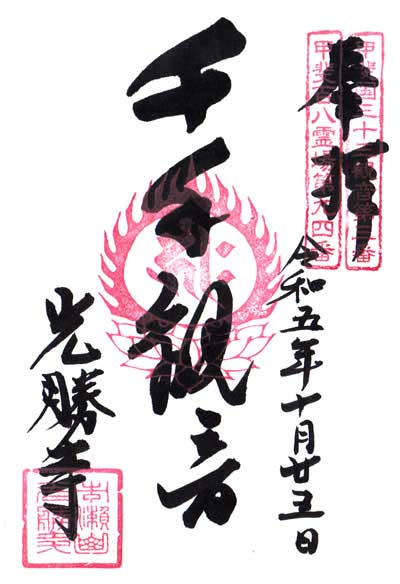 奉拝
甲斐国三十三観音第
甲斐百八霊場第九四番
千手観音
令和五年十月廿五日
光勝寺